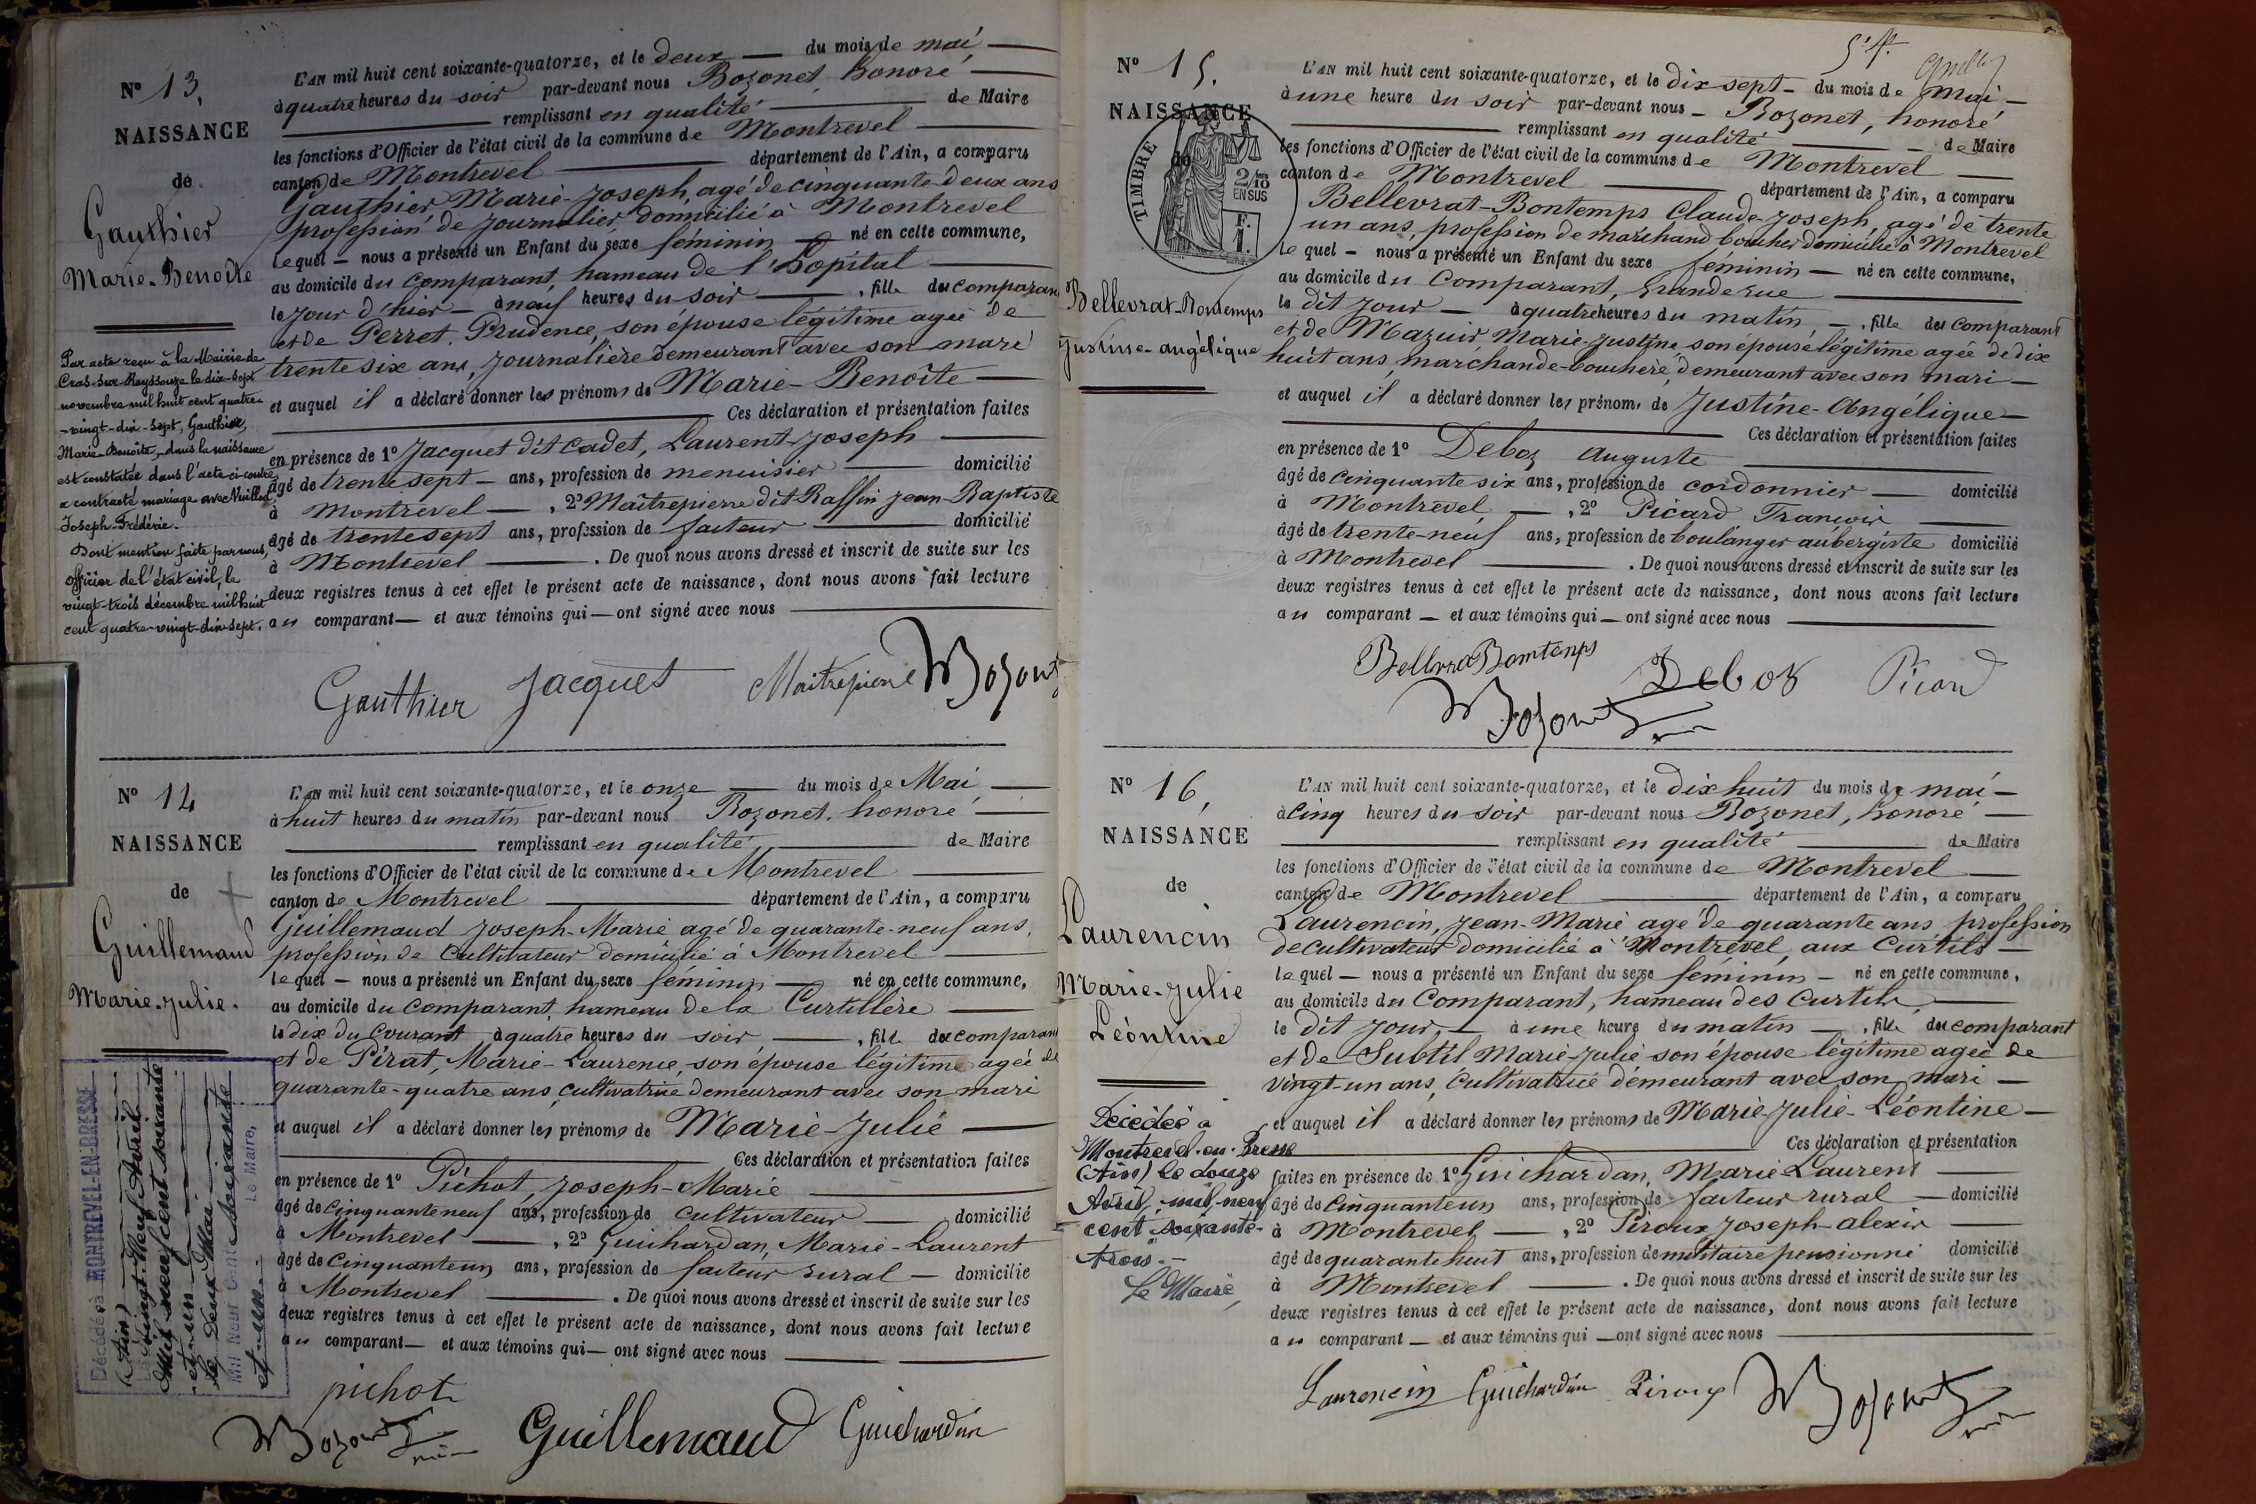 N° 13.
NAISSANCE
de
Gauthier
Marie-Benoîte
Par acte reçu à la Mairie de
Cras-sur-Reyssouze le dix-sept
novembre mil huit cent quatre-
-vingt-dix-sept, Gauthier,
Marie-Benoîte, dans la naissance
est constatée dans l'acte ci-contre
a contracté mariage avec
Joseph-Frédéric.
Dont mention faite par nous,
officier de l'état civil, le
vingt-trois décembre mil huit
cent quatre-vingt-dix-sept.
L'AN mil huit cent soixante-quatorze, et le deux du mois de mai
à quatre heures du soir par-devant nous Bozonet, honoré
remplissant en qualité de Maire
les fonctions d'Officier de l'état civil de la commune de Montrevel
canton de Montrevel département de l'Ain, a comparu
Gauthier Marie-Joseph, agé de cinquante-deux ans
profession de journalier, domicilié à Montrevel
lequel – nous a présenté un Enfant du sexe féminin né en cette commune,
au domicile du comparant, hameau de l'hopital
le jour d'hier – à neuf heures du soir , fille du comparant
et de Perret, Prudence, son épouse légitime agée de
trente six ans, journalière demeurant avec son mari
et auquel il a déclaré donner les prénoms de Marie-Benoîte
Ces déclaration et présentation faites
en présence de 1° Jacquet dit Cadet, Laurent-Joseph
âgé de trente sept – ans, profession de menuisier domicilié
à Montrevel , 2° Maîtrepierre dit Raffin Jean-Baptiste
âgé de trente sept ans, profession de facteur domicilié
à Montrevel . De quoi nous avons dressé et inscrit de suite sur les
deux registres tenus à cet effet le présent acte de naissance, dont nous avons fait lecture
au comparant — et aux témoins qui — ont signé avec nous
Gauthier Jacquet Maitrepierre Bozonet
N° 14
NAISSANCE
de
Guillemaud
Marie-Julie.
Décédée à MONTREVEL-EN-BRESSE
(Ain)
Vingt-Neuf Avril
Mil neuf cent soixante
et-un
le Deux Mai
Mil Neuf Cent soixante
et-un. Le Maire,
L'AN mil huit cent soixante-quatorze, et le onze du mois de Mai
à huit heures du matin par-devant nous Bozonet, honoré
remplissant en qualité de Maire
les fonctions d'Officier de l'état civil de la commune de Montrevel
canton de Montrevel département de l'Ain, a comparu
Guillemaud Joseph-Marie agé de quarante-neuf ans,
profession de cultivateur domicilié à Montrevel
lequel – nous a présenté un Enfant du sexe féminin né en cette commune,
au domicile du comparant, hameau de la Curtillère
le dix du courant à quatre heures du soir , fille du comparant
et de Pirat, Marie-Laurence, son épouse légitime agée de
quarante-quatre ans, cultivatrice demeurant avec son mari
et auquel il a déclaré donner les prénoms de Marie-Julie
Ces déclaration et présentation faites
en présence de 1° Pichot, Joseph-Marie
âgé de cinquante neuf ans, profession de cultivateur domicilié
à Montrevel , 2° Guichardan, Marie-Laurent
âgé de cinquante un ans, profession de facteur rural – domicilié
à Montrevel . De quoi nous avons dressé et inscrit de suite sur les
deux registres tenus à cet effet le présent acte de naissance, dont nous avons fait lecture
au comparant — et aux témoins qui — ont signé avec nous
pichot
Bozonet Guillemaud Guichardan
N° 15.
NAISSANCE
de
TIMBRE
2/10 EN SUS
Bellevrat-Bontemps
Justine-angélique
L'AN mil huit cent soixante-quatorze, et le dix sept – du mois de mai –
à une heure du soir par-devant nous – Bozonet, honoré
remplissant en qualité de Maire
les fonctions d'Officier de l'état civil de la commune de Montrevel
canton de Montrevel département de l'Ain, a comparu
Bellevrat-Bontemps Claude-Joseph, agé de trente
un ans, profession de marchand boucher domicilié à Montrevel
lequel – nous a présenté un Enfant du sexe féminin – né en cette commune,
au domicile du Comparant, Grande rue
le dit jour – à quatre heures du matin – , fille du comparant
et de Mazuir, Marie-Justine son épouse légitime agée de dix
huit ans, marchande-bouchère, demeurant avec son mari –
et auquel il a déclaré donner les prénoms de Justine-Angélique –
Ces déclaration et présentation faites
en présence de 1° Deboz Auguste
âgé de cinquante six ans, profession de cordonnier domicilié
à Montrevel , 2° Picard François
âgé de trente-neuf ans, profession de boulanger aubergiste domicilié
à Montrevel . De quoi nous avons dressé et inscrit de suite sur les
deux registres tenus à cet effet le présent acte de naissance, dont nous avons fait lecture
au comparant – et aux témoins qui – ont signé avec nous
Bellevra Bontemps Deboz Picard
Bozonet
N° 16,
NAISSANCE
de
Laurencin
Marie-Julie
Léontine
Décédée à
Montrevel-en-Bresse
(Ain) le douze
Avril, mil-neuf
cent soixante-
trois.-
Le Maire,
L'AN mil huit cent soixante-quatorze, et le dix huit du mois de mai –
à cinq heures du soir par-devant nous Bozonet, honoré
remplissant en qualité de Maire
les fonctions d'Officier de l'état civil de la commune de Montrevel
canton de Montrevel département de l'Ain, a comparu
Laurencin, Jean-Marie agé de quarante ans, profession
de cultivateur domicilié à Montrevel, aux Curtils –
lequel – nous a présenté un Enfant du sexe féminin – né en cette commune,
au domicile du Comparant, hameau des Curtils
le dit jour, – à une heure du matin – , fille du comparant
et de Subtil Marie-Julie son épouse légitime agée de
vingt-un ans, cultivatrice demeurant avec son mari –
et auquel il a déclaré donner les prénoms de Marie-Julie-Léontine –
Ces déclaration et présentation
faites en présence de 1° Guichardan, Marie-Laurent
âgé de cinquante un ans, profession de facteur rural – domicilié
à Montrevel , 2° Piroux Joseph-alexis
âgé de quarante huit ans, profession de militaire pensionné domicilié
à Montrevel . De quoi nous avons dressé et inscrit de suite sur les
deux registres tenus à cet effet le présent acte de naissance, dont nous avons fait lecture
au comparant – et aux témoins qui – ont signé avec nous
Laurencin Guichardan Piroux Bozonet